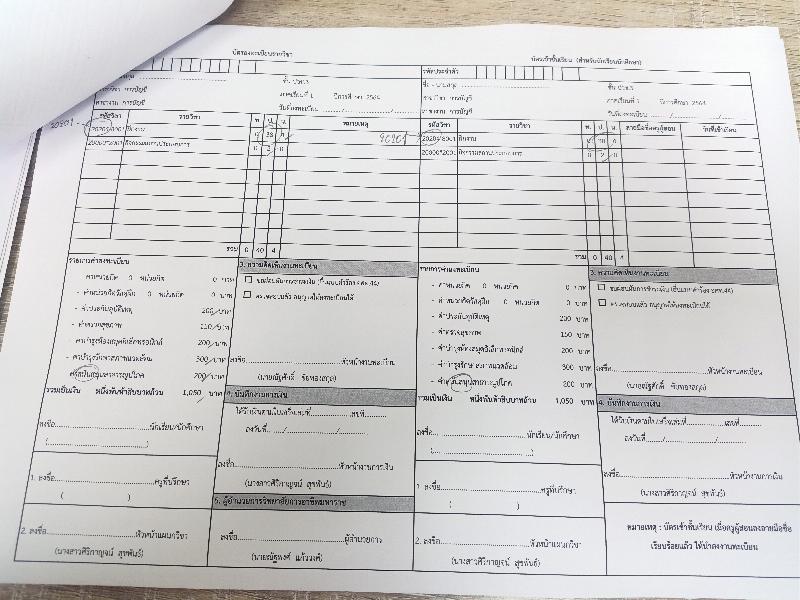 บัตรลงทะเบียนรายวิชา
ชั้น ปวช.3
สาขาวิชา การบัญชี ภาคเรียนที่ 1 ปีการศึกษา 2564
สาขางาน การบัญชี วันที่ลงทะเบียน ....../....../......
20201
รหัสวิชา รายวิชา ท. ป. น. หมายเหตุ
ฝึกงาน 38 4
20000*2001 กิจกรรมสถานประกอบการ 0 2 0
รวม 0 40 4
รายการค่าลงทะเบียน
- ค่าหน่วยกิต 0 หน่วยกิต 0 บาท
- ค่าหน่วยกิตวัสดุฝึก 0 หน่วยกิต 0 บาท
- ค่าประกันอุบัติเหตุ 200 บาท
- ค่าตรวจสุขภาพ 150 บาท
- ค่าบำรุงห้องสมุดอิเล็กทรอนิกส์ 200 บาท
- ค่าบำรุงรักษาสภาพแวดล้อม 300 บาท
200 บาท
รวมเป็นเงิน หนึ่งพันห้าสิบบาทถ้วน 1,050 บาท
ลงชื่อ....................นักเรียน/นักศึกษา
(..............................)
1. ลงชื่อ....................ครูที่ปรึกษา
( )
2. ลงชื่อ....................หัวหน้าแผนกวิชา
(นางสาวศิริกาญจน์ สุขพันธ์)
3. ความคิดเห็นงานทะเบียน
ตรวจสอบแล้ว อนุญาตให้ลงทะเบียนได้
ลงชื่อ....................หัวหน้างานทะเบียน
(นายณัฐศักดิ์ ชัยทองสกุล)
4. บันทึกงานการเงิน
ได้รับเงินตามใบเสร็จเล่มที่..............เลขที่..........
ลงวันที่....../............/............
ลงชื่อ....................หัวหน้างานการเงิน
(นางสาวศิริกาญจน์ สุขพันธ์)
5. ผู้อำนวยการวิทยาลัยการอาชีพมหาราช
ลงชื่อ....................ผู้อำนวยการ
(นายณัฐพงศ์ แก้ววงศ์)
บัตรเข้าชั้นเรียน (สำหรับนักเรียนนักศึกษา)
รหัสประจำตัว
ชื่อ - นามสกุล ชั้น ปวช.3
สาขาวิชา การบัญชี ภาคเรียนที่ 1 ปีการศึกษา 2564
สาขางาน การบัญชี วันที่ลงทะเบียน ....../....../......
20201
รหัสวิชา รายวิชา ท. ป. น. ลายมือชื่อครูผู้สอน วันที่เข้าเรียน
ฝึกงาน 38 4
20000*2001 กิจกรรมสถานประกอบการ 0 2 0
รวม 0 40 4
รายการค่าลงทะเบียน
- ค่าหน่วยกิต 0 หน่วยกิต 0 บาท
- ค่าหน่วยกิตวัสดุฝึก 0 หน่วยกิต 0 บาท
- ค่าประกันอุบัติเหตุ 200 บาท
- ค่าตรวจสุขภาพ 150 บาท
- ค่าบำรุงห้องสมุดอิเล็กทรอนิกส์ 200 บาท
- ค่าบำรุงรักษาสภาพแวดล้อม 300 บาท
200 บาท
รวมเป็นเงิน หนึ่งพันห้าสิบบาทถ้วน 1,050 บาท
ลงชื่อ....................นักเรียน/นักศึกษา
(..............................)
1. ลงชื่อ....................ครูที่ปรึกษา
( )
2. ลงชื่อ....................หัวหน้าแผนกวิชา
(นางสาวศิริกาญจน์ สุขพันธ์)
3. ความคิดเห็นงานทะเบียน
ตรวจสอบแล้ว อนุญาตให้ลงทะเบียนได้
ลงชื่อ....................หัวหน้างานทะเบียน
(นายณัฐศักดิ์ ชัยทองสกุล)
4. บันทึกงานการเงิน
ได้รับเงินตามใบเสร็จเล่มที่..............เลขที่..........
ลงวันที่....../............/............
ลงชื่อ....................หัวหน้างานการเงิน
(นางสาวศิริกาญจน์ สุขพันธ์)
หมายเหตุ : บัตรเข้าชั้นเรียน เมื่อครูผู้สอนลงลายมือชื่อ
เรียบร้อยแล้ว ให้นำส่งงานทะเบียน